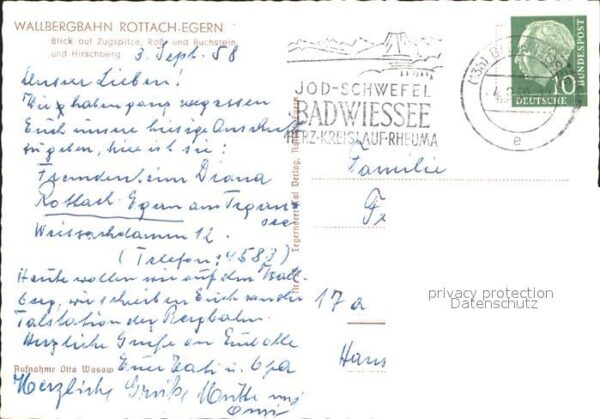 WALLBERGBAHN ROTTACH-EGERN
Blick auf Zugspitze, Roß und Buchstein
und Hirschberg
3. Sept. 58
Unsere Lieben!
Wir haben ganz vergessen
Euch unsere hiesige Anschrift
zu geben, hier ist sie:
Fremdenheim Diana
Rottach-Egern am Tegern
see
Weissachdamm 12.
(Telefon: 4583)
Heute wollen wir auf den Wall
berg, wir schreiben Euch von der
Talstation der Bergbahn.
Herzliche Grüße an Euch alle
Euer Vati u. Opa
Herzliche Grüße Mutti und
Omi
Aufnahme Otto Wasow
Tegernseertal Verlag,
JOD-SCHWEFEL
BAD WIESSEE
HERZ-KREISLAUF-RHEUMA
e
10
DEUTSCHE
BUNDESPOST
Familie
Fr
17a
Hans
privacy protection
Datenschutz